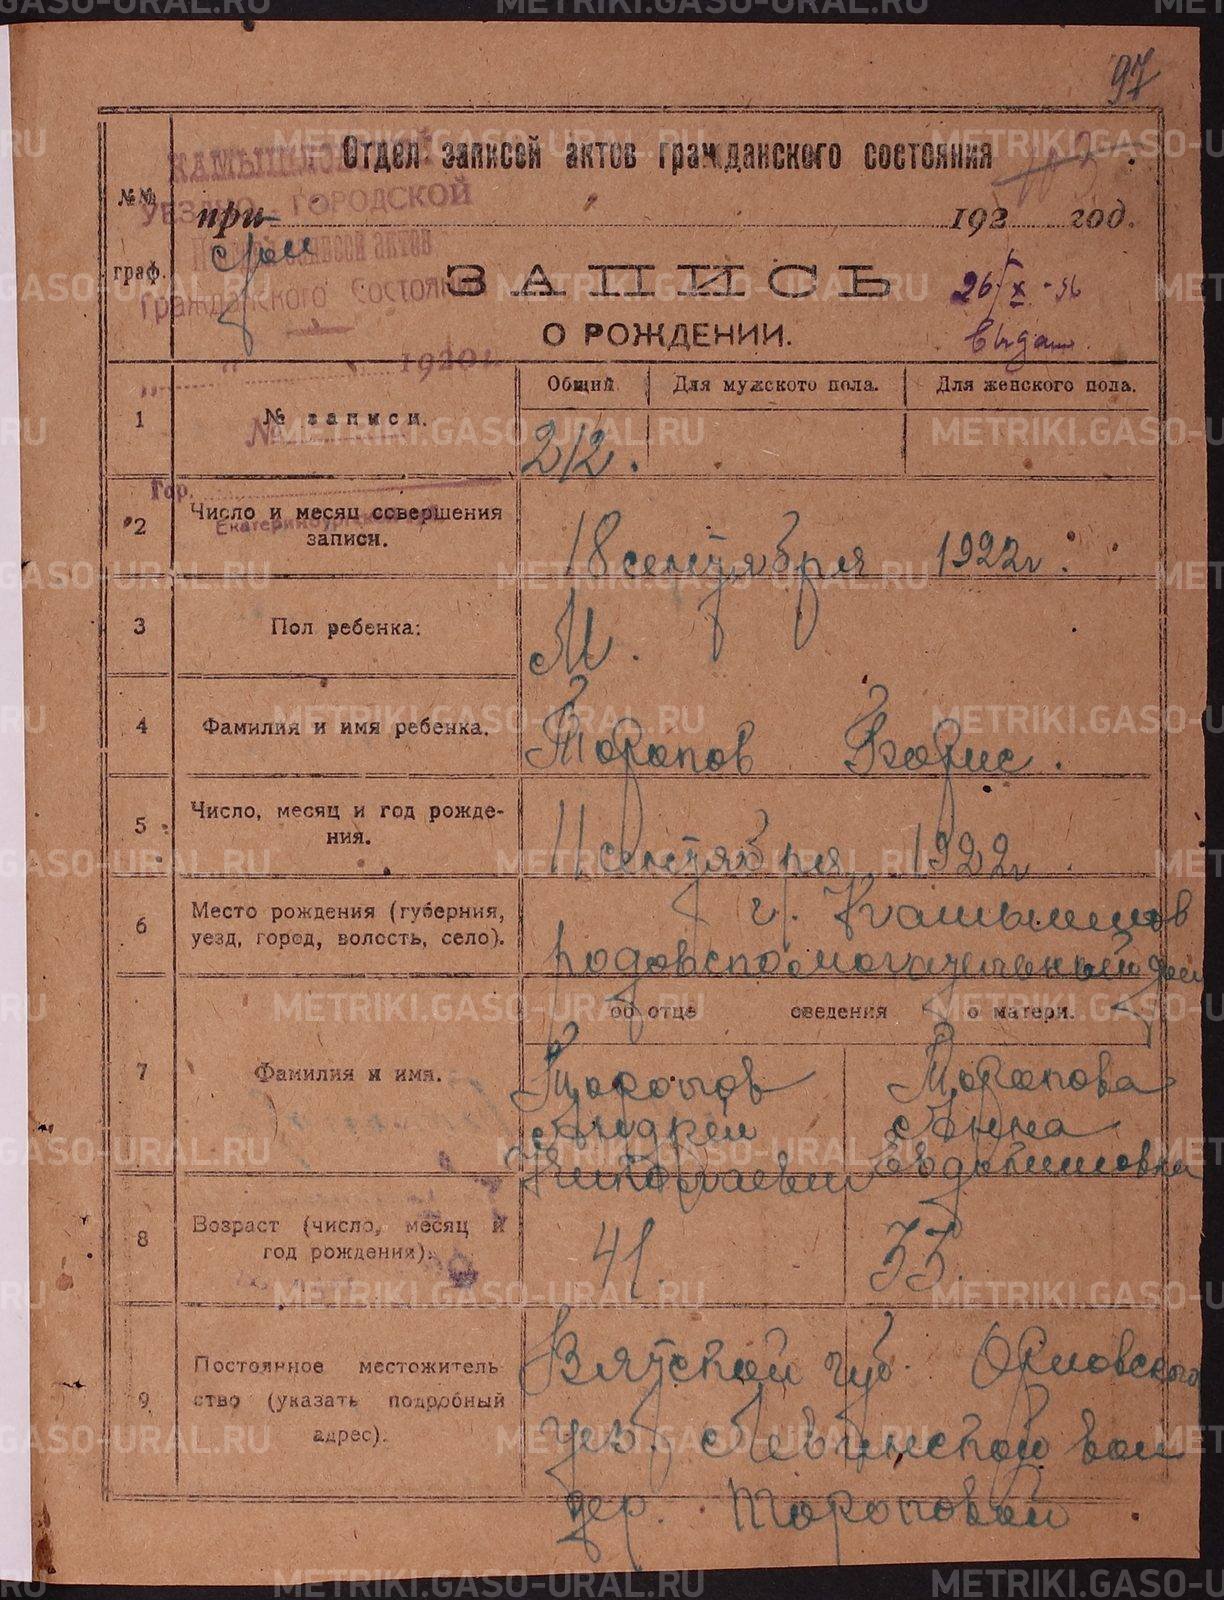 97
Отдел записей актов гражданского состояния
КАМЫШЛОВСКИЙ
УЕЗДНО-ГОРОДСКОЙ
при 192 год.
записей актов
Гражданского Состояния
ЗАПИСЬ
26/X-56
О РОЖДЕНИИ.
выдан.
№№
граф.
1920 г.
Общий
Для мужского пола.
Для женского пола.
1
№ записи.
№
212.
Гор.
Екатеринбургской губ.
2
Число и месяц совершения
записи.
18 сентября 1922 г.
3
Пол ребенка:
М.
4
Фамилия и имя ребенка.
Торопов Борис.
5
Число, месяц и год рожде-
ния.
11 сентября 1922 г.
6
Место рождения (губерния,
уезд, город, волость, село).
г. Камышлов
родовспомогательный дом
об отце сведения о матери.
7
Фамилия и имя.
Торопов
Андрей
Николаевич
Торопова
Анна
Евдокимовна
8
Возраст (число, месяц и
год рождения).
41.
33.
9
Постоянное местожитель
ство (указать подробный
адрес).
Вятской губ. Орловского
уез. Левинской вол
дер. Тороповой
METRIKI.GASO-URAL.RU